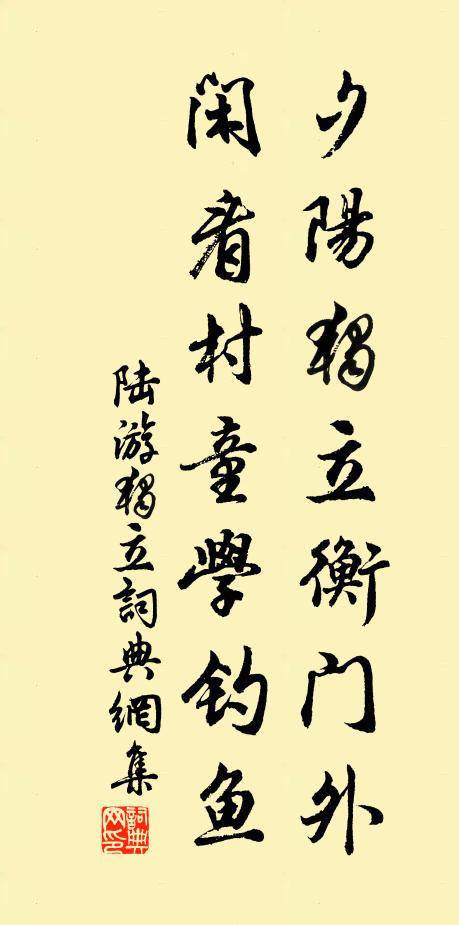 夕陽獨立衡门外
闲看村童學钓鱼
陆游獨立詞典網集
詞典网印